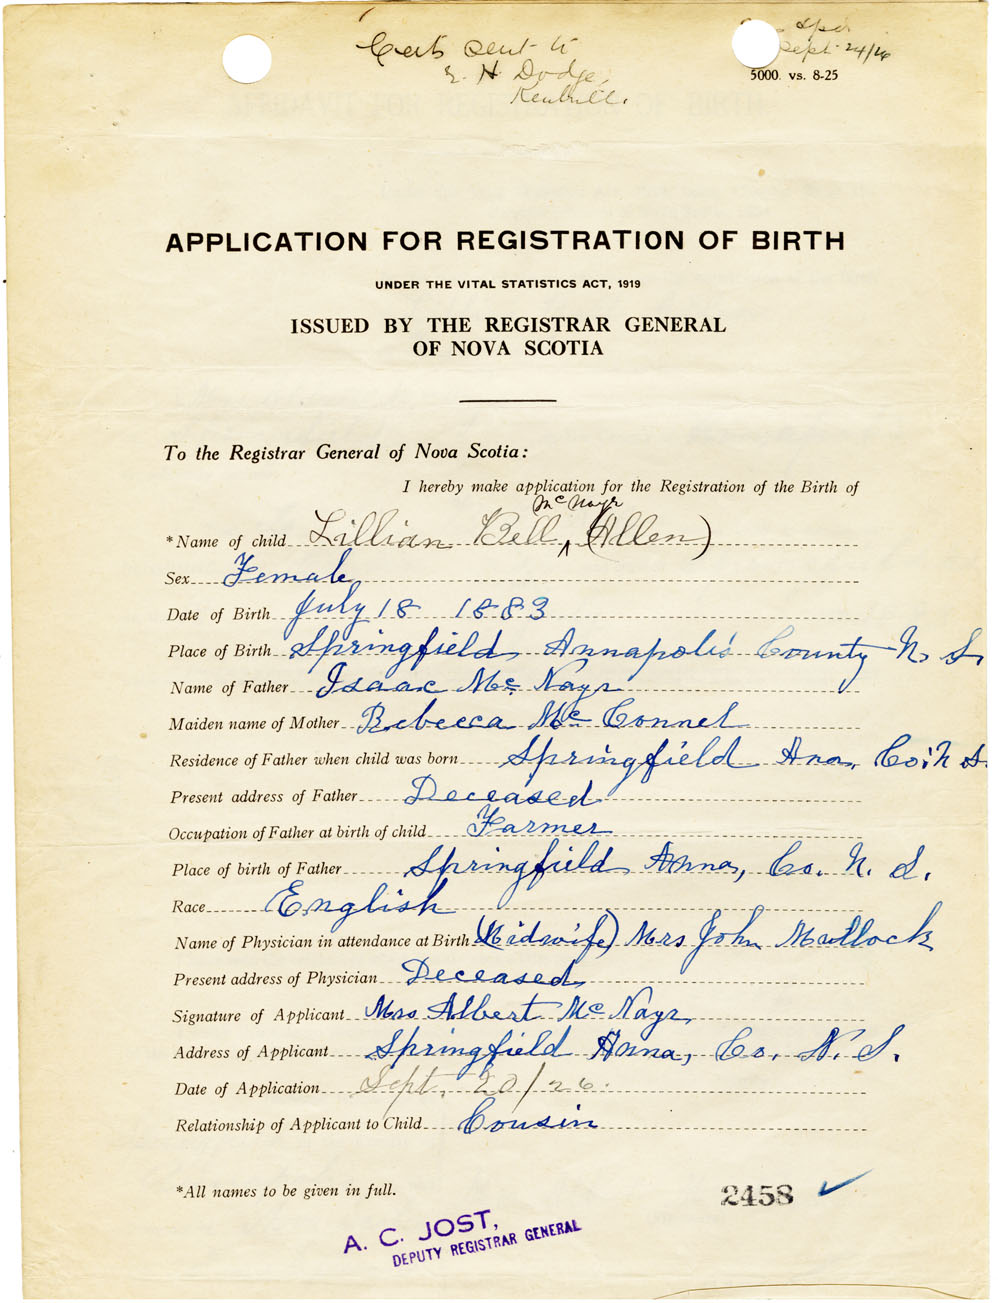 Certs sent to
E. H. Dodge,
Kentville.
Sept 24/26
5000. vs. 8-25
APPLICATION FOR REGISTRATION OF BIRTH
UNDER THE VITAL STATISTICS ACT, 1919
ISSUED BY THE REGISTRAR GENERAL
OF NOVA SCOTIA
To the Registrar General of Nova Scotia:
I hereby make application for the Registration of the Birth of
McNayr
*Name of child Lillian Bell ^ (Allen)
Sex Female
Date of Birth July 18 1883
Place of Birth Springfield Annapolis County N. S.
Name of Father Isaac Mc Nayr
Maiden name of Mother Rebecca Mc Connel
Residence of Father when child was born Springfield Anna, Co: N S.
Present address of Father Deceased
Occupation of Father at birth of child Farmer
Place of birth of Father Springfield Anna, Co. N. S.
Race English
Name of Physician in attendance at Birth (Midwife) Mrs John Mullock
Present address of Physician Deceased
Signature of Applicant Mrs Albert McNayr
Address of Applicant Springfield Anna, Co. N. S.
Date of Application Sept. 20/26.
Relationship of Applicant to Child Cousin
*All names to be given in full.
2458
A. C. JOST,
DEPUTY REGISTRAR GENERAL